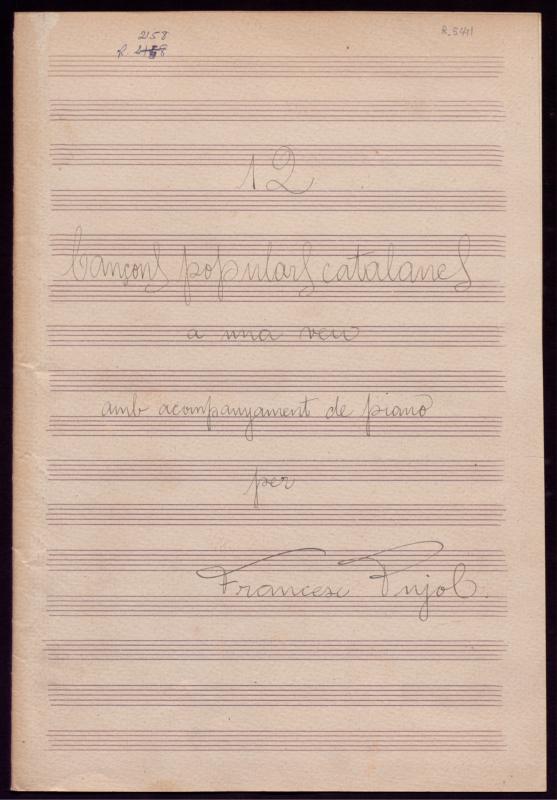 2158
R. 2158
R. 5411
12
Cançons populars catalanes
a una veu
amb acompanyament de piano
per
Francesc Pujol.